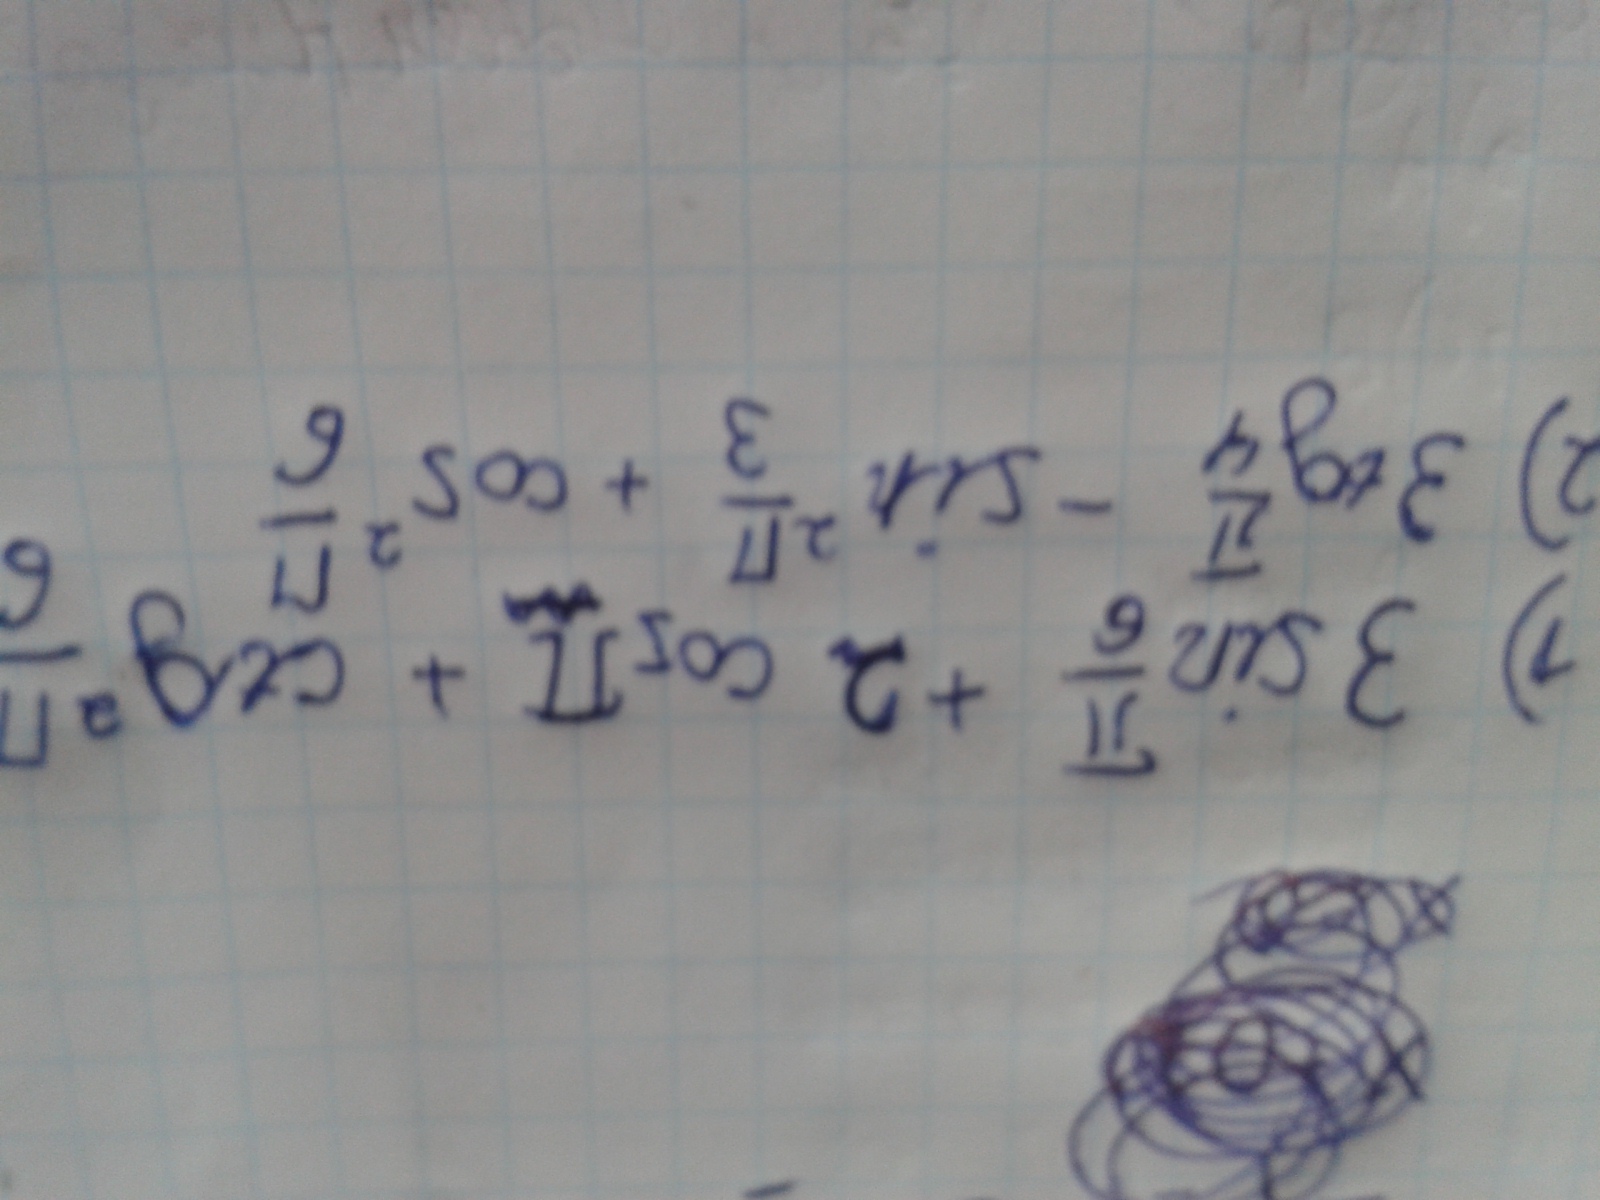 1) 3 sin π/6 + 2 cos π + ctg² π/6
2) 3 tg π/4 - sin² π/3 + cos² π/6